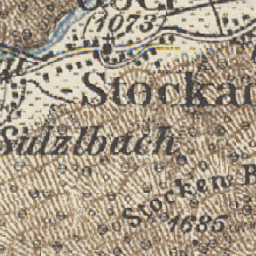 (1073)
Stocka
Sulzlbach
Stocken B
1685